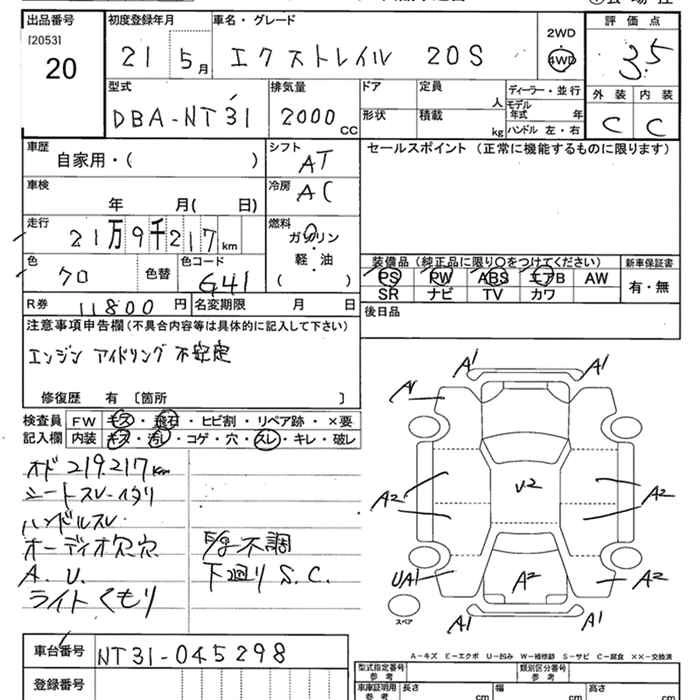 出品番号 初度登録年月 車名・グレード 評価点
[2053]
20
21 5月 エクストレイル 20S 2WD 4WD 3.5
型式 排気量 ドア 定員 ディーラー・並行 外装 内装
DBA-NT31 2000 CC 人 モデル年式 年 C C
形状 積載 kg ハンドル 左・右
車歴 シフト セールスポイント (正常に機能するものに限ります)
自家用・( ) AT
車検 冷房
年 月( 日) AC
走行 燃料
21万9千217km ガソリン
軽・油
( )
色 色替 色コード 装備品 (純正品に限り○をつけてください) 新車保証書
クロ G41 PS PW ABS エアB AW 有・無
SR ナビ TV カワ
R券 11800円 名変期限 月 日 後日品
注意事項申告欄 (不具合内容等は具体的に記入して下さい)
エンジン アイドリング 不安定
修復歴 有 [箇所 ]
検査員 FW キズ・飛石・ヒビ割・リペア跡・×要
記入欄 内装 キズ・汚レ・コゲ・穴・スレ・キレ・破レ
オド 219.217Km
シートスレ・ヘタリ
ハンドルスレ
オーディオ欠穴 不調
A.U. 下廻り S.C.
ライトくもり
A1 A1
A1
A2 U2 A2
UA1 A2 A2
A1 A1
スペア
A-キズ E-エクボ U-凹み W-補修跡 S-サビ C-腐食 ××-交換済
車台番号 NT31-045298
登録番号
型式指定番号 参考 類別区分番号 参考
車庫証明用 参考 長さ cm 幅 cm 高さ cm